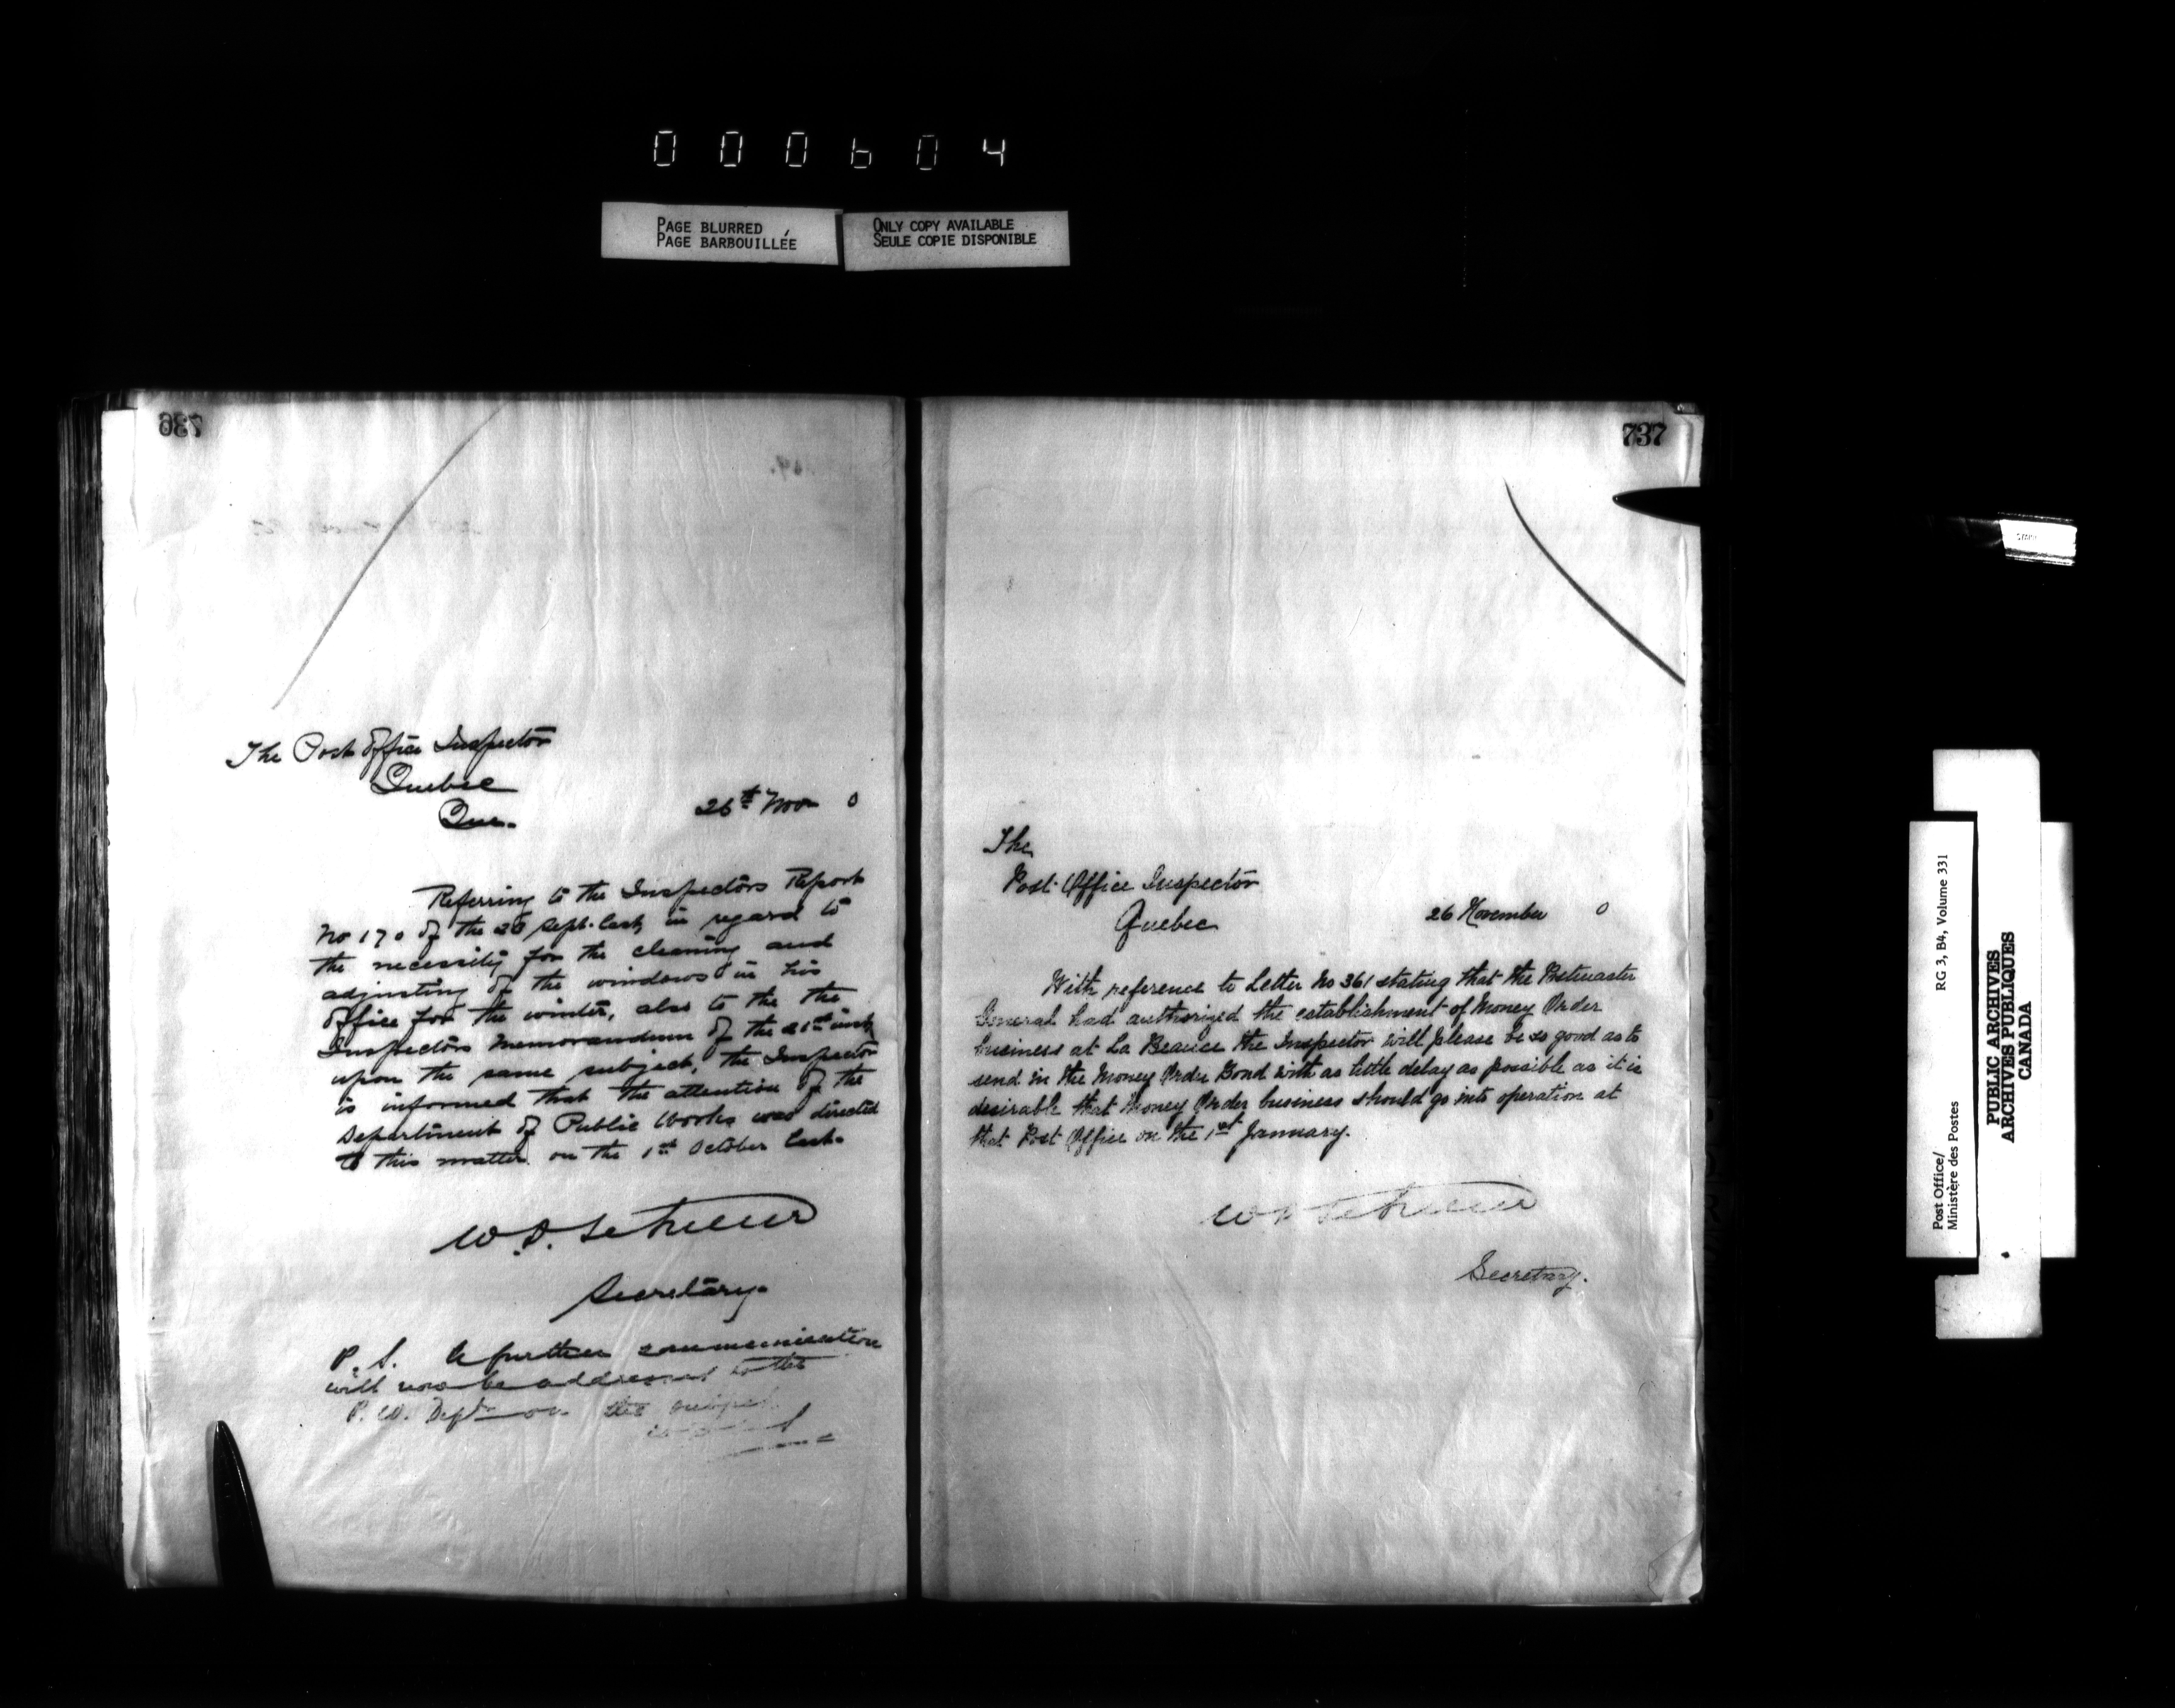 000604
PAGE BLURRED
PAGE BARBOUILLÉE
ONLY COPY AVAILABLE
SEULE COPIE DISPONIBLE
736
The Post Office Inspector
Quebec
Que.
26th Nov 0
Referring to the Inspectors Report
No 170 of the Sept. last, in regard to
the necessity for the cleaning and
adjusting of the windows in his
Office for the winter, also to the the
Inspectors Memorandum of the 21st inst,
upon the same subject, the Inspector
is informed that the attention of the
Department of Public Works was directed
to this matter on the 1st October last.
Secretary.
P.S. A further communication
will now be addressed to the
P. W. Dept on the subject
737
The
Post Office Inspector
Quebec
26 November 0
With reference to Letter No 361 stating that the Postmaster
General had authorized the establishment of Money Order
business at La Beauce the Inspector will please be so good as to
send in the Money Order Bond with as little delay as possible as it is
desirable that Money Order business should go into operation at
that Post Office on the 1st January.
Secretary.
Post Office/
Ministère des Postes
RG 3, B4, Volume 331
PUBLIC ARCHIVES
ARCHIVES PUBLIQUES
CANADA